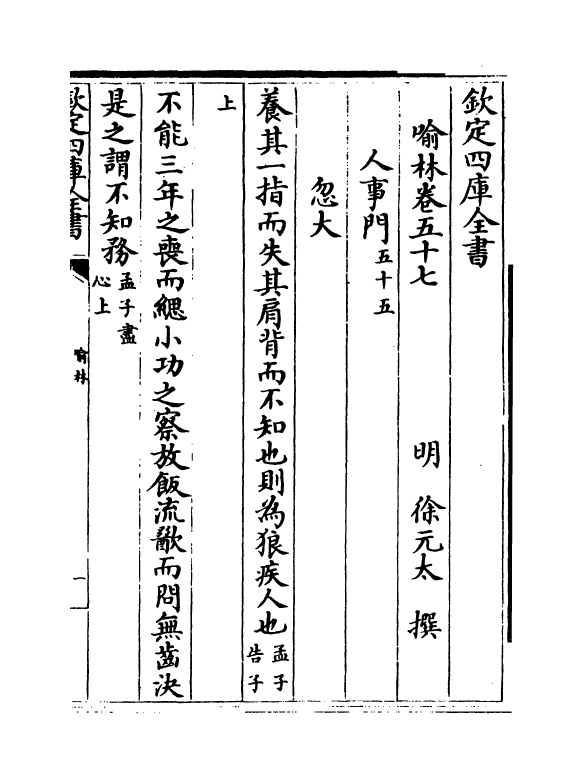 欽定四庫全書
喻林卷五十七　明　徐元太　撰
人事門五十五
忽大
養其一指而失其肩背而不知也則為狼疾人也孟子告子
上
不能三年之喪而緦小功之察放飯流歠而問無齒決
是之謂不知務孟子盡心上
欽定四庫全書
喻林
一